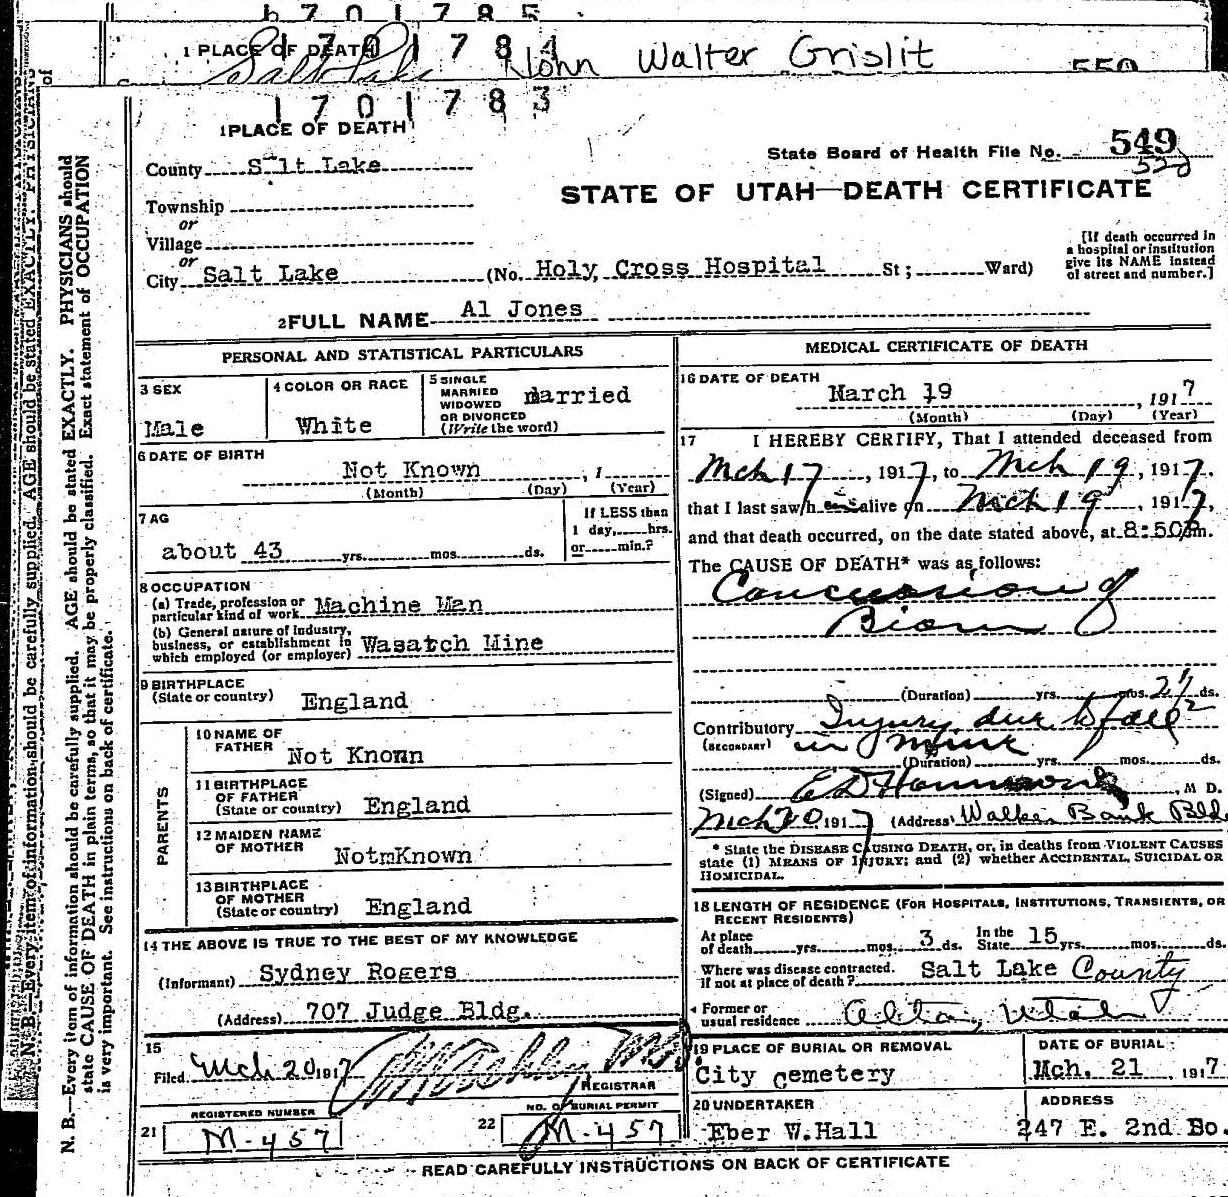 1701785
1 PLACE OF DEATH 1701784 John Walter Grislit
Salt Lake 550
of
1701783
1 PLACE OF DEATH
State Board of Health File No. 549
522
County S lt Lake
STATE OF UTAH—DEATH CERTIFICATE
Township
or
Village
or
City Salt Lake (No. Holy Cross Hospital St ; Ward)
[If death occurred in
a hospital or institution
give its NAME instead
of street and number.]
2 FULL NAME Al Jones
PERSONAL AND STATISTICAL PARTICULARS
3 SEX
Male
4 COLOR OR RACE
White
5 SINGLE
MARRIED
WIDOWED
OR DIVORCED
(Write the word)
married
6 DATE OF BIRTH
Not Known , 1
(Month) (Day) (Year)
7 AG
about 43 yrs. mos. ds.
If LESS than
1 day, hrs.
or min.?
8 OCCUPATION
(a) Trade, profession or
particular kind of work Machine Man
(b) General nature of Industry,
business, or establishment in
which employed (or employer) Wasatch Mine
9 BIRTHPLACE
(State or country) England
PARENTS
10 NAME OF
FATHER Not Known
11 BIRTHPLACE
OF FATHER
(State or country) England
12 MAIDEN NAME
OF MOTHER
NotmKnown
13 BIRTHPLACE
OF MOTHER
(State or country) England
14 THE ABOVE IS TRUE TO THE BEST OF MY KNOWLEDGE
(Informant) Sydney Rogers
(Address) 707 Judge Bldg.
15
Filed Mch 20 1917
REGISTRAR
REGISTERED NUMBER
21 M-457
NO. OF BURIAL PERMIT
22 M-457
MEDICAL CERTIFICATE OF DEATH
16 DATE OF DEATH
March 19 , 1917
(Month) (Day) (Year)
17 I HEREBY CERTIFY, That I attended deceased from
Mch 17 , 1917, to Mch 19, 1917,
that I last saw h alive on Mch 19 , 1917,
and that death occurred, on the date stated above, at 8:50 P m.
The CAUSE OF DEATH* was as follows:
Concussion of
Brain
(Duration) yrs. mos. ds.
Contributory Injury due to fall
(SECONDARY) in mine
(Duration) yrs. mos. ds.
(Signed) E D Hammond , M D.
Mch 20, 1917 (Address) Walker Bank Bld
* State the DISEASE CAUSING DEATH, or, in deaths from VIOLENT CAUSES
state (1) MEANS OF INJURY; and (2) whether ACCIDENTAL, SUICIDAL OR
HOMICIDAL.
18 LENGTH OF RESIDENCE (FOR HOSPITALS, INSTITUTIONS, TRANSIENTS, OR
RECENT RESIDENTS)
At place
of death yrs. mos. 3 ds. In the
State 15 yrs. mos. ds.
Where was disease contracted.
If not at place of death? Salt Lake County
Former or
usual residence Alta, Utah
19 PLACE OF BURIAL OR REMOVAL
City Cemetery
DATE OF BURIAL
Mch. 21 , 1917
20 UNDERTAKER
Eber W.Hall
ADDRESS
247 E. 2nd So.
READ CAREFULLY INSTRUCTIONS ON BACK OF CERTIFICATE
N. B.—Every item of information should be carefully supplied. AGE should be stated EXACTLY. PHYSICIANS should
state CAUSE OF DEATH in plain terms, so that it may be properly classified. Exact statement of OCCUPATION
is very important. See instructions on back of certificate.
N. B.—Every item of information should be carefully supplied. AGE should be stated EXACTLY. PHYSICIANS